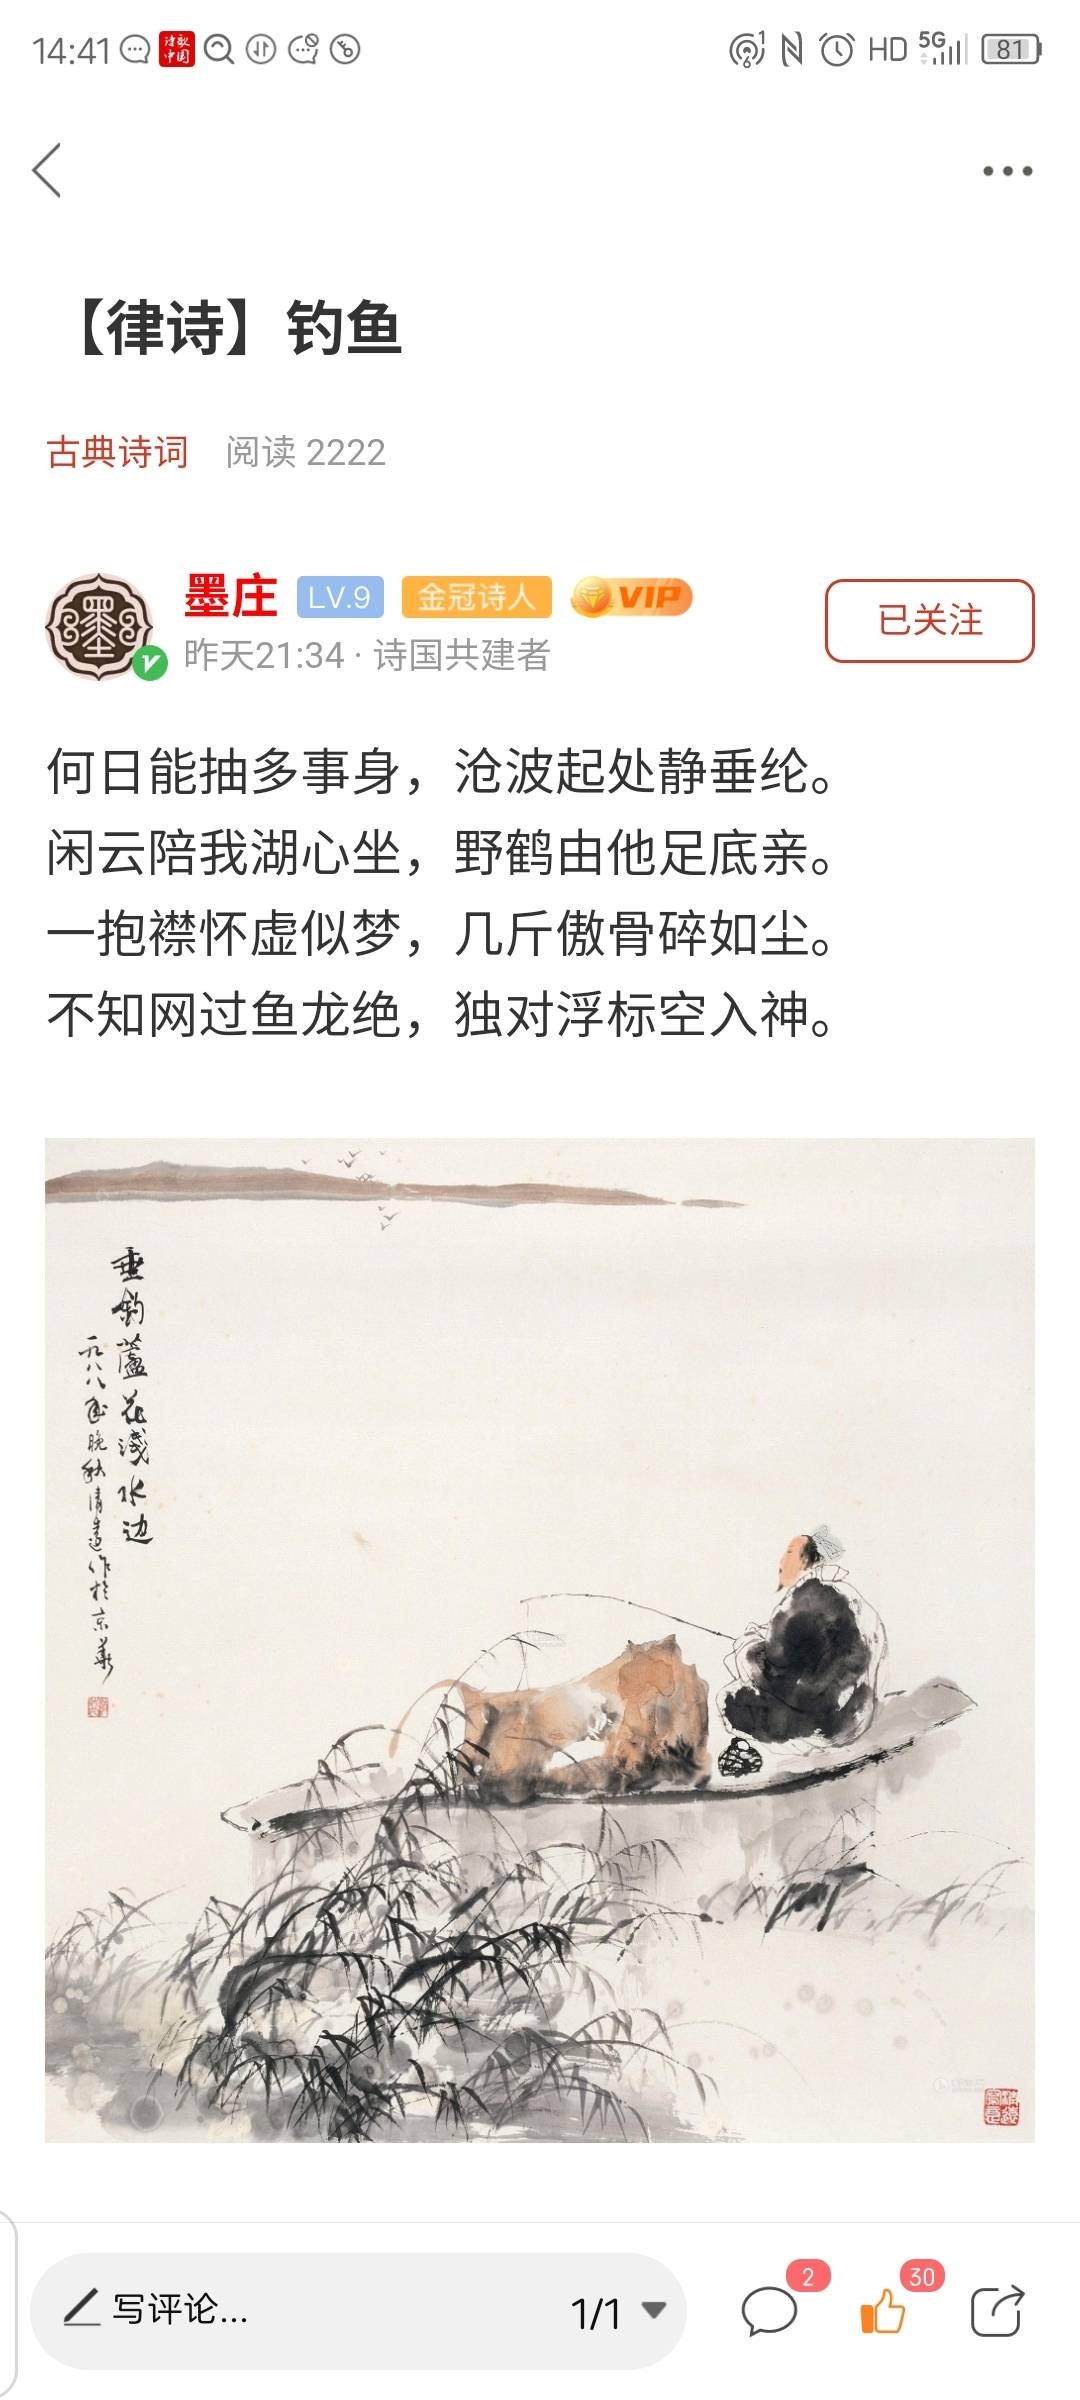 14:41
诗歌
中国
HD
5G
81
【律诗】钓鱼
古典诗词 阅读 2222
墨庄 LV.9 金冠诗人 VIP
昨天21:34 · 诗国共建者
已关注
何日能抽多事身，沧波起处静垂纶。
闲云陪我湖心坐，野鹤由他足底亲。
一抱襟怀虚似梦，几斤傲骨碎如尘。
不知网过鱼龙绝，独对浮标空入神。
垂钓蘆花淺水边
一九八八年晚秋清遠作於京華
写评论... 1/1
2
30